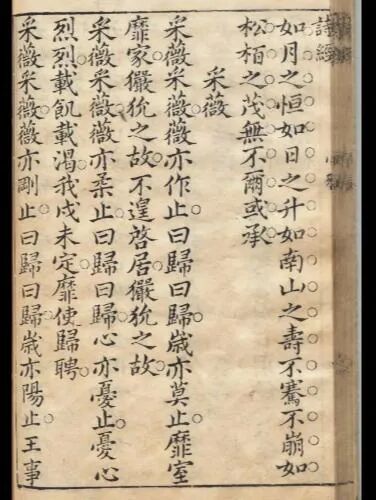 詩經
如月之恒如日之升如南山之壽不騫不崩如
松栢之茂無不爾或承
采薇
采薇采薇薇亦作止曰歸曰歸歲亦莫止靡室
靡家玁狁之故不遑啓居玁狁之故
采薇采薇薇亦柔止曰歸曰歸心亦憂止憂心
烈烈載飢載渴我戍未定靡使歸聘
采薇采薇薇亦剛止曰歸曰歸歲亦陽止王事